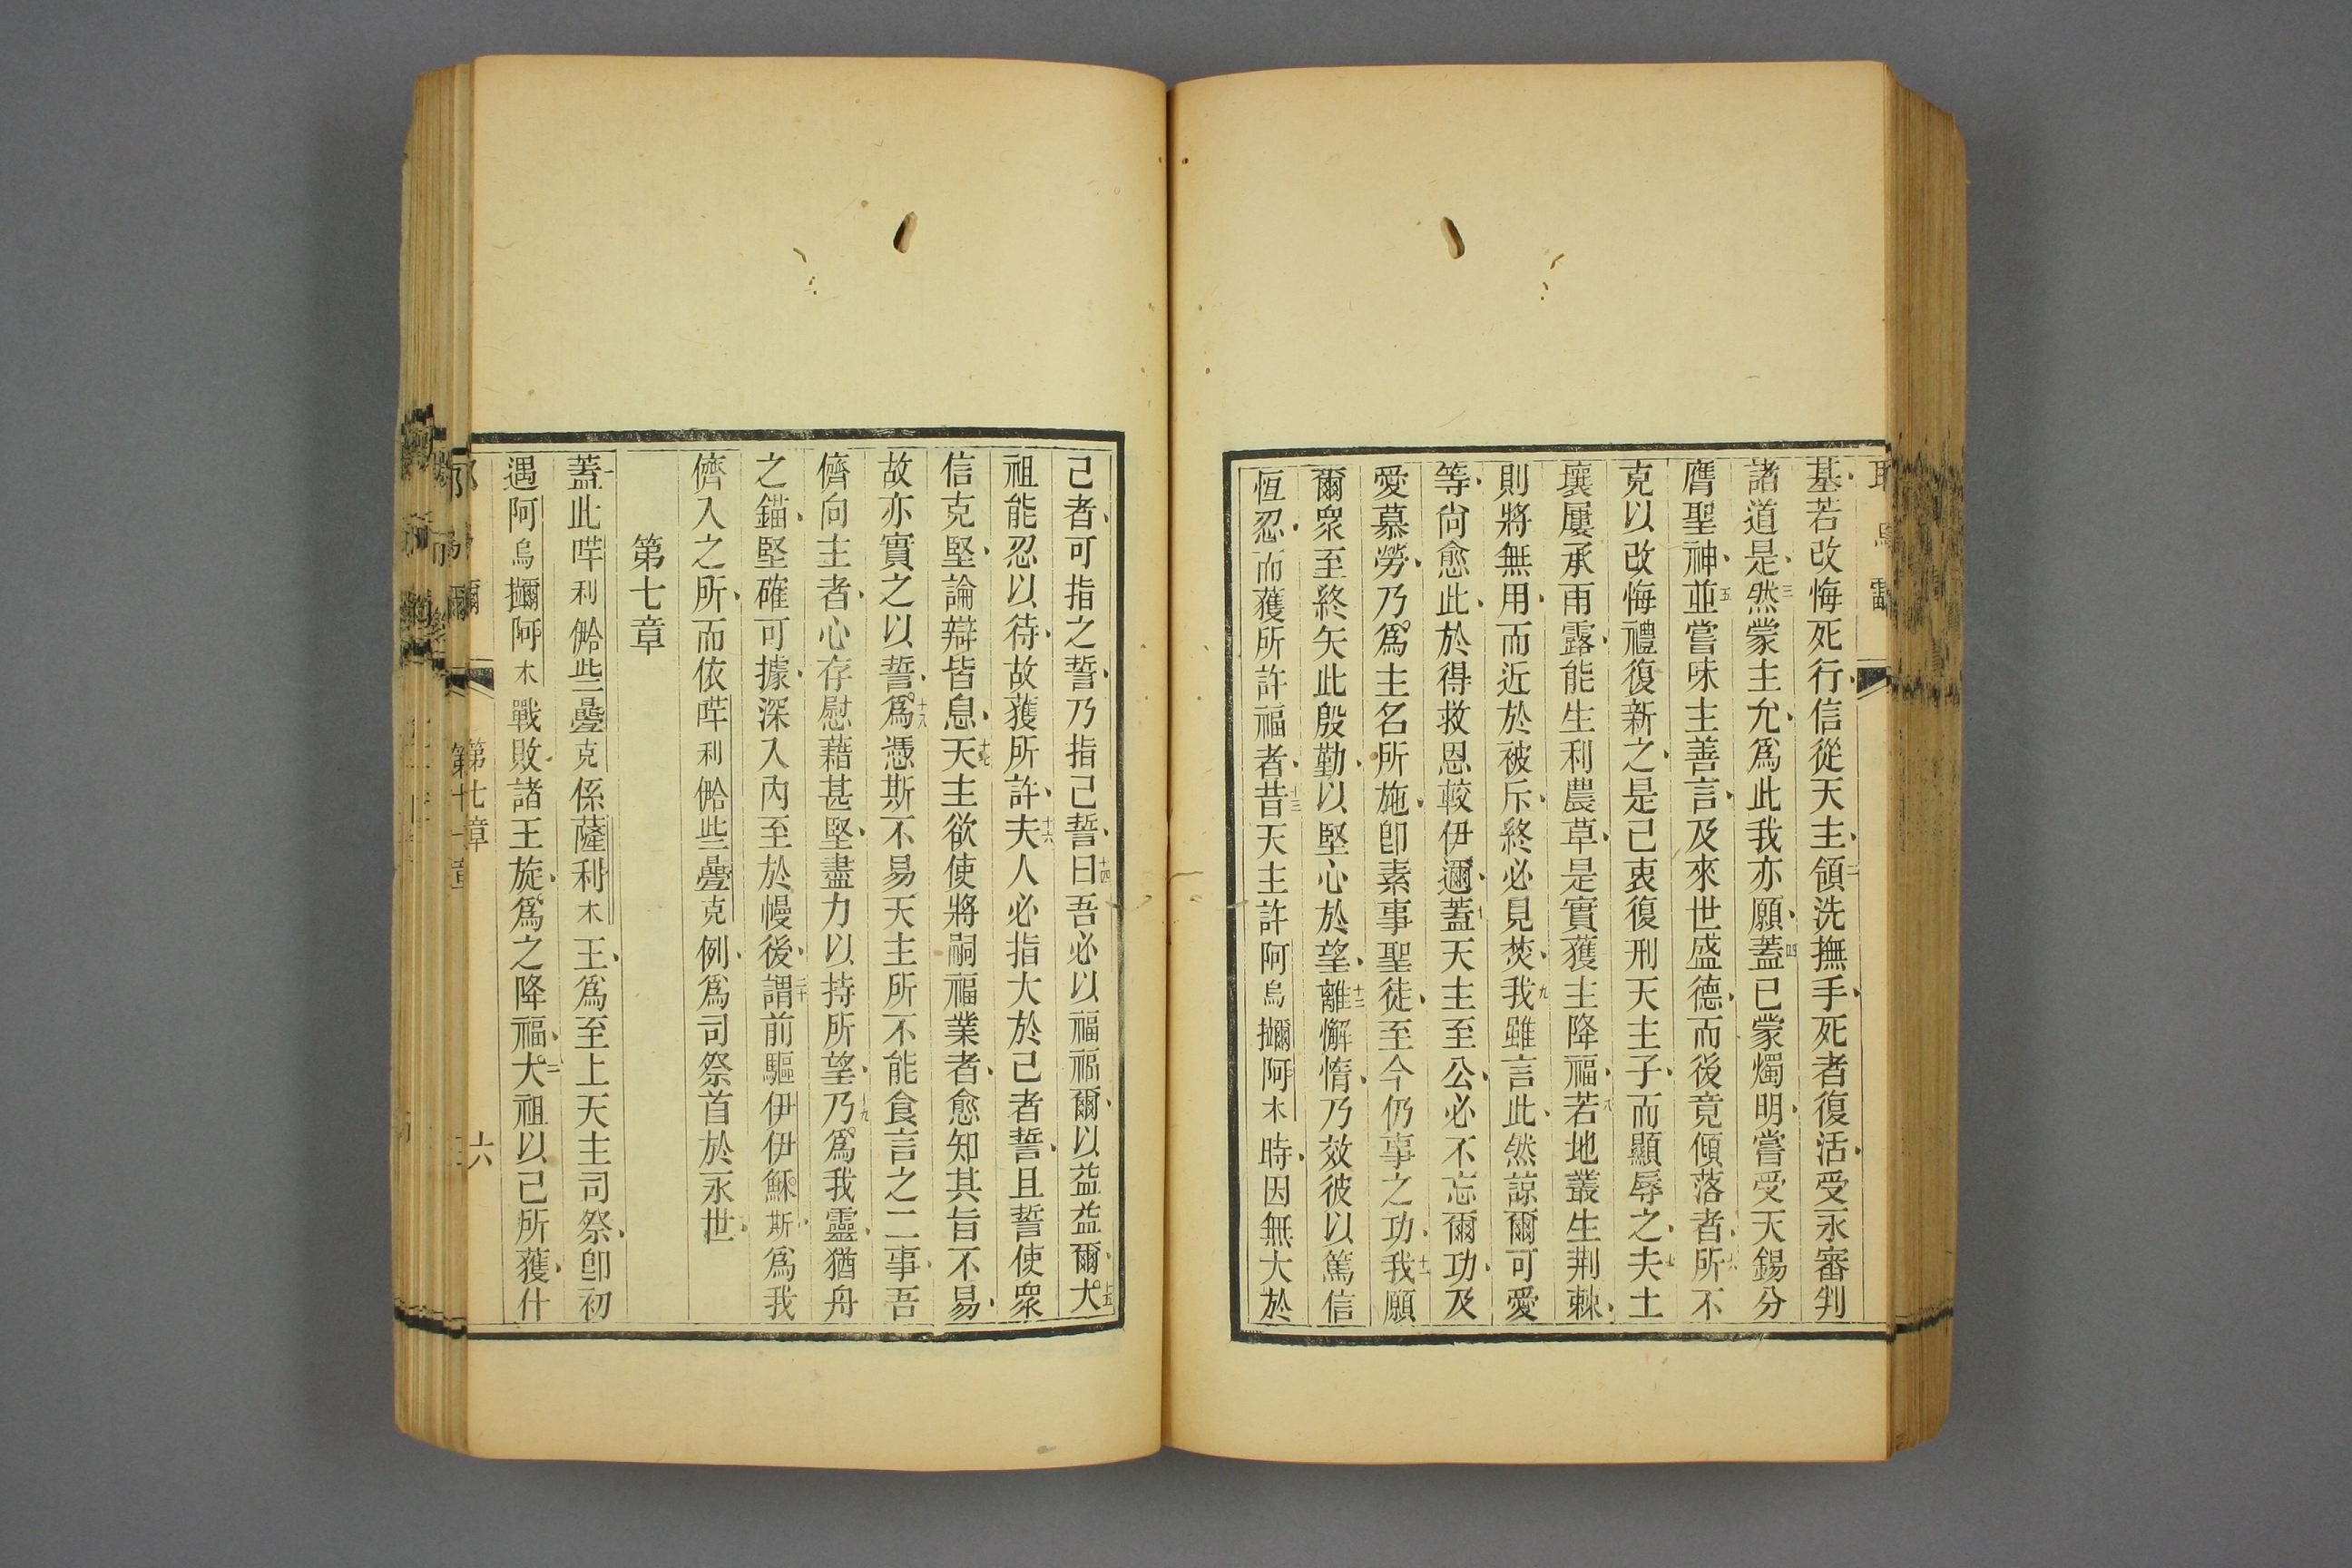 基若改悔死行信從天主二領洗撫手死者復活受永審判
諸道是三然蒙主允爲此我亦願四蓋已蒙燭明嘗受天錫分
膺聖神五並嘗味主善言及來世盛德而後竟傾落者六所不
克以改悔禮復新之是己衷復刑天主子而顯辱之七夫土
壤屢承雨露能生利農草是實獲主降福八若地叢生荆棘
則將無用而近於被斥終必見焚九我雖言此然諒爾可愛
等尙愈此於得救恩較伊邇十蓋天主至公必不忘爾功及
愛慕勞乃爲主名所施卽素事聖徒至今仍事之功十一我願
爾衆至終矢此殷勤以堅心於望十二離懈惰乃效彼以篤信
恆忍而獲所許福者十三昔天主許阿烏𢹎阿木時因無大於
己者可指之誓乃指己誓十四曰吾必以福福爾以益益爾十五夫
祖能忍以待故獲所許十六夫人必指大於己者誓且誓使衆
信克堅論辯皆息十七天主欲使將嗣福業者愈知其旨不易
故亦實之以誓十八爲憑斯不易天主所不能食言之二事吾
儕向主者心存慰藉甚堅盡力以持所望十九乃爲我靈猶舟
之錨堅確可據深入內至於幔後二十謂前驅伊伊穌斯爲我
儕入之所而依哶利僌些疊克例爲司祭首於永世
第七章
一蓋此哶利僌些疊克係薩利木王爲至上天主司祭卽初
遇阿烏𢹎阿木戰敗諸王旋爲之降福二夫祖以己所獲什
第七章
六